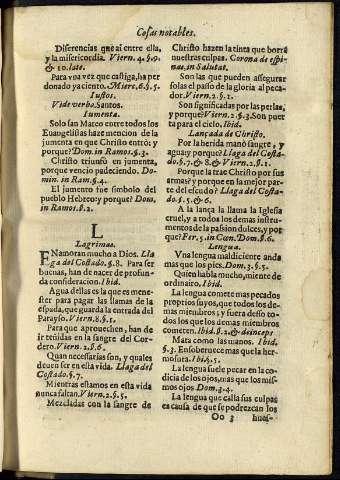 Cosas notables.
Diferencias que ai entre ella,
y la misericordia. Viern. 4. §. 9.
& 10. late.
Para vna vez que castiga, ha per
donado ya ciento. Mierc. 6. §. 5.
Iustos.
Vide verbo. Santos.
Iumenta.
Solo san Marco entre todos los
Euangelistas haze mencion de la
jumenta en que Christo entrò: y
porque? Dom. in Ramos. §. 3.
Christo triunfò en jumenta,
porque vencio padeciendo. Do-
min. in Ram. §. 4.
El jumento fue simbolo del
pueblo Hebreo: y porque? Dom.
in Ramos. §. 2.
L
Lagrimas.
ENamoran mucho a Dios. Lla
ga del Costado. §. 8. Para ser
buenas, han de nacer de profun-
da consideracion. Ibid.
Agua dellas es la que es mene-
ster para pagar las llamas de la
espada, que guarda la entrada del
Parayso. Viern. 8. §. 1.
Para que aprouechen, han de
ir teñidas en la sangre del Cor-
dero. Viern. 2. §. 6.
Quan necessarias son, y quales
deuen ser en esta vida. Llaga del
Costado. §. 7.
Mientras estamos en esta vida
nunca faltan. Viern. 2. §. 5.
Mezcladas con la sangre de
Christo hazen la tinta que borra
nuestras culpas. Corona de espi-
nas, in Salutat.
Son las que pueden assegurar
solas el passo de la gloria al peca-
dor. Vier. 2. §. 1.
Son significadas por las perlas,
y porque? Viern. 2. §. 3. Son puer
ta para el cielo. Ibid.
Lançada de Christo.
Por la herida manò sangre, y
agua: y porque? Llaga del Costa-
do. §. 7. & 8. & Viern. 2. §. 1.
Porque la trae Christo por sus
armas? y porque en la mejor par-
te del escudo? Llaga del Costa-
do. §. 5. §. 1.
A la lança la llama la Iglesia
cruel, y a todos los demas instru-
mentos de la passion dulces, y por
que? Fer. 5. in Cœn. Dom. §. 6.
Lengua.
Vna lengua maldiciente anda
mas que los pies. Dom. 3. §. 5.
Quien habla mucho, miente de
ordinaire. Ibid.
La lengua comete mas pecados
proprios suyos, que todos los de-
mas miembros; y fuera desso to-
dos los que los demas miembros
cometen. Ibid. §. 2. & deinceps.
Mata como las manos. Ibid.
§. 3. Ensoberuece mas que la her-
mosura. Ibid. §. 5.
La lengua suele pecar en la co-
dicia de los ojos, mas que los mis-
mos ojos. Dom. 3. §. 4.
La lengua que calla sus culpas
es causa de que se podrezcan los
Oo 3 hues-